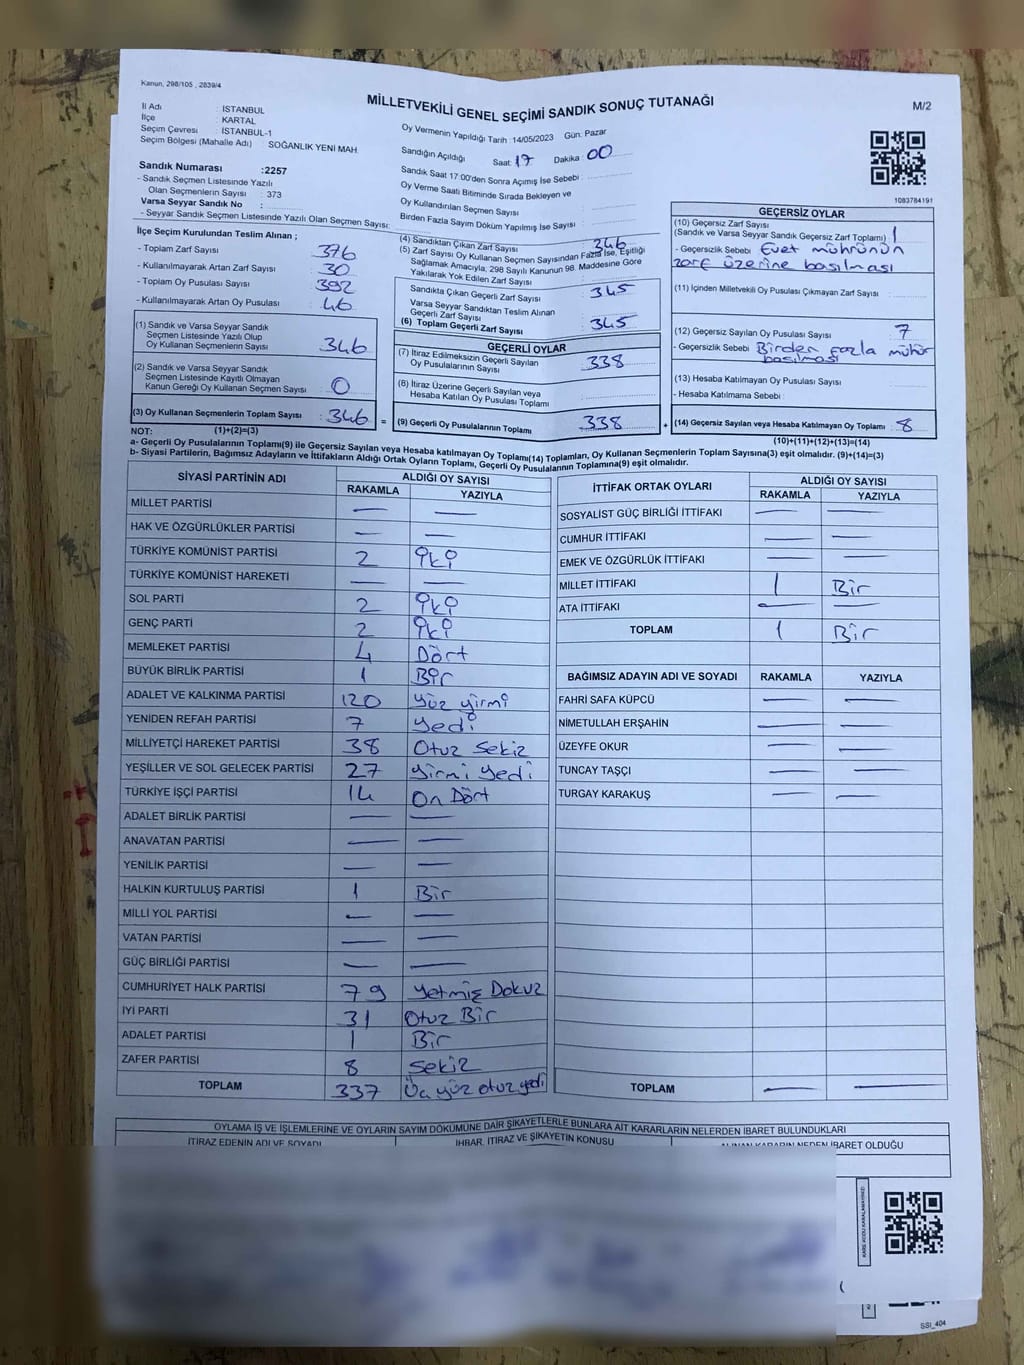 Kanun, 298/105 , 2839/4
MİLLETVEKİLİ GENEL SEÇİMİ SANDIK SONUÇ TUTANAĞI
M/2
İl Adı : İSTANBUL
İlçe : KARTAL
Seçim Çevresi : İSTANBUL-1
Seçim Bölgesi (Mahalle Adı) SOĞANLIK YENİ MAH.
Sandık Numarası :2257
- Sandık Seçmen Listesinde Yazılı
Olan Seçmenlerin Sayısı : 373
Varsa Seyyar Sandık No :
- Seyyar Sandık Seçmen Listesinde Yazılı Olan Seçmen Sayısı:
Oy Vermenin Yapıldığı Tarih :14/05/2023 Gün: Pazar
Sandığın Açıldığı Saat: 17 Dakika: 00
Sandık Saat 17:00'den Sonra Açımış İse Sebebi :
Oy Verme Saati Bitiminde Sırada Bekleyen ve
Oy Kullandırılan Seçmen Sayısı :
Birden Fazla Sayım Döküm Yapılmış İse Sayısı :
1083784191
İlçe Seçim Kurulundan Teslim Alınan ;
- Toplam Zarf Sayısı : 376
- Kullanılmayarak Artan Zarf Sayısı : 30
- Toplam Oy Pusulası Sayısı : 392
- Kullanılmayarak Artan Oy Pusulası : 46
(1) Sandık ve Varsa Seyyar Sandık
Seçmen Listesinde Yazılı Olup
Oy Kullanan Seçmenlerin Sayısı : 346
(2) Sandık ve Varsa Seyyar Sandık
Seçmen Listesinde Kayıtlı Olmayan
Kanun Gereği Oy Kullanan Seçmen Sayısı : 0
(3) Oy Kullanan Seçmenlerin Toplam Sayısı : 346 =
(4) Sandıktan Çıkan Zarf Sayısı : 346
(5) Zarf Sayısı Oy Kullanan Seçmen Sayısından Fazla İse, Eşitliği
Sağlamak Amacıyla, 298 Sayılı Kanunun 98. Maddesine Göre
Yakılarak Yok Edilen Zarf Sayısı :
Sandıkta Çıkan Geçerli Zarf Sayısı : 345
Varsa Seyyar Sandıktan Teslim Alınan
Geçerli Zarf Sayısı :
(6) Toplam Geçerli Zarf Sayısı : 345
GEÇERLİ OYLAR
(7) İtiraz Edilmeksizin Geçerli Sayılan
Oy Pusulalarının Sayısı : 338
(8) İtiraz Üzerine Geçerli Sayılan veya
Hesaba Katılan Oy Pusulası Toplamı :
(9) Geçerli Oy Pusulalarının Toplamı : 338 +
GEÇERSİZ OYLAR
(10) Geçersiz Zarf Sayısı
(Sandık ve Varsa Seyyar Sandık Geçersiz Zarf Toplamı) : 1
- Geçersizlik Sebebi : Evet mührünün
zarf üzerine basılması
(11) İçinden Milletvekili Oy Pusulası Çıkmayan Zarf Sayısı :
(12) Geçersiz Sayılan Oy Pusulası Sayısı : 7
- Geçersizlik Sebebi : Birden fazla mühür
basılması
(13) Hesaba Katılmayan Oy Pusulası Sayısı :
- Hesaba Katılmama Sebebi :
(14) Geçersiz Sayılan veya Hesaba Katılmayan Oy Toplamı : 8
NOT: (1)+(2)=(3)
(10)+(11)+(12)+(13)=(14)
a- Geçerli Oy Pusulalarının Toplamı(9) ile Geçersiz Sayılan veya Hesaba katılmayan Oy Toplamı(14) Toplamları, Oy Kullanan Seçmenlerin Toplam Sayısına(3) eşit olmalıdır. (9)+(14)=(3)
b- Siyasi Partilerin, Bağımsız Adayların ve İttifakların Aldığı Ortak Oyların Toplamı, Geçerli Oy Pusulalarının Toplamına(9) eşit olmalıdır.
SİYASİ PARTİNİN ADI ALDIĞI OY SAYISI
RAKAMLA YAZIYLA
MİLLET PARTİSİ — —
HAK VE ÖZGÜRLÜKLER PARTİSİ — —
TÜRKİYE KOMÜNİST PARTİSİ 2 İki
TÜRKİYE KOMÜNİST HAREKETİ — —
SOL PARTİ 2 İki
GENÇ PARTİ 2 İki
MEMLEKET PARTİSİ 4 Dört
BÜYÜK BİRLİK PARTİSİ 1 Bir
ADALET VE KALKINMA PARTİSİ 120 Yüz yirmi
YENİDEN REFAH PARTİSİ 7 Yedi
MİLLİYETÇİ HAREKET PARTİSİ 38 Otuz Sekiz
YEŞİLLER VE SOL GELECEK PARTİSİ 27 Yirmi yedi
TÜRKİYE İŞÇİ PARTİSİ 14 On Dört
ADALET BİRLİK PARTİSİ — —
ANAVATAN PARTİSİ — —
YENİLİK PARTİSİ — —
HALKIN KURTULUŞ PARTİSİ 1 Bir
MİLLİ YOL PARTİSİ — —
VATAN PARTİSİ — —
GÜÇ BİRLİĞİ PARTİSİ — —
CUMHURİYET HALK PARTİSİ 79 Yetmiş Dokuz
İYİ PARTİ 31 Otuz Bir
ADALET PARTİSİ 1 Bir
ZAFER PARTİSİ 8 Sekiz
TOPLAM 337 Üç yüz otuz yedi
İTTİFAK ORTAK OYLARI ALDIĞI OY SAYISI
RAKAMLA YAZIYLA
SOSYALİST GÜÇ BİRLİĞİ İTTİFAKI — —
CUMHUR İTTİFAKI — —
EMEK VE ÖZGÜRLÜK İTTİFAKI — —
MİLLET İTTİFAKI 1 Bir
ATA İTTİFAKI — —
TOPLAM 1 Bir
BAĞIMSIZ ADAYIN ADI VE SOYADI RAKAMLA YAZIYLA
FAHRİ SAFA KÜPCÜ — —
NİMETULLAH ERŞAHİN — —
ÜZEYFE OKUR — —
TUNCAY TAŞÇI — —
TURGAY KARAKUŞ — —
TOPLAM — —
OYLAMA İŞ VE İŞLEMLERİNE VE OYLARIN SAYIM DÖKÜMÜNE DAİR ŞİKAYETLERLE BUNLARA AİT KARARLARIN NELERDEN İBARET BULUNDUKLARI
İTİRAZ EDENİN ADI VE SOYADI İHBAR, İTİRAZ VE ŞİKAYETİN KONUSU ALINAN KARARIN NEDEN İBARET OLDUĞU
KARE KODU KARALAMAYINIZ!
SSI_404